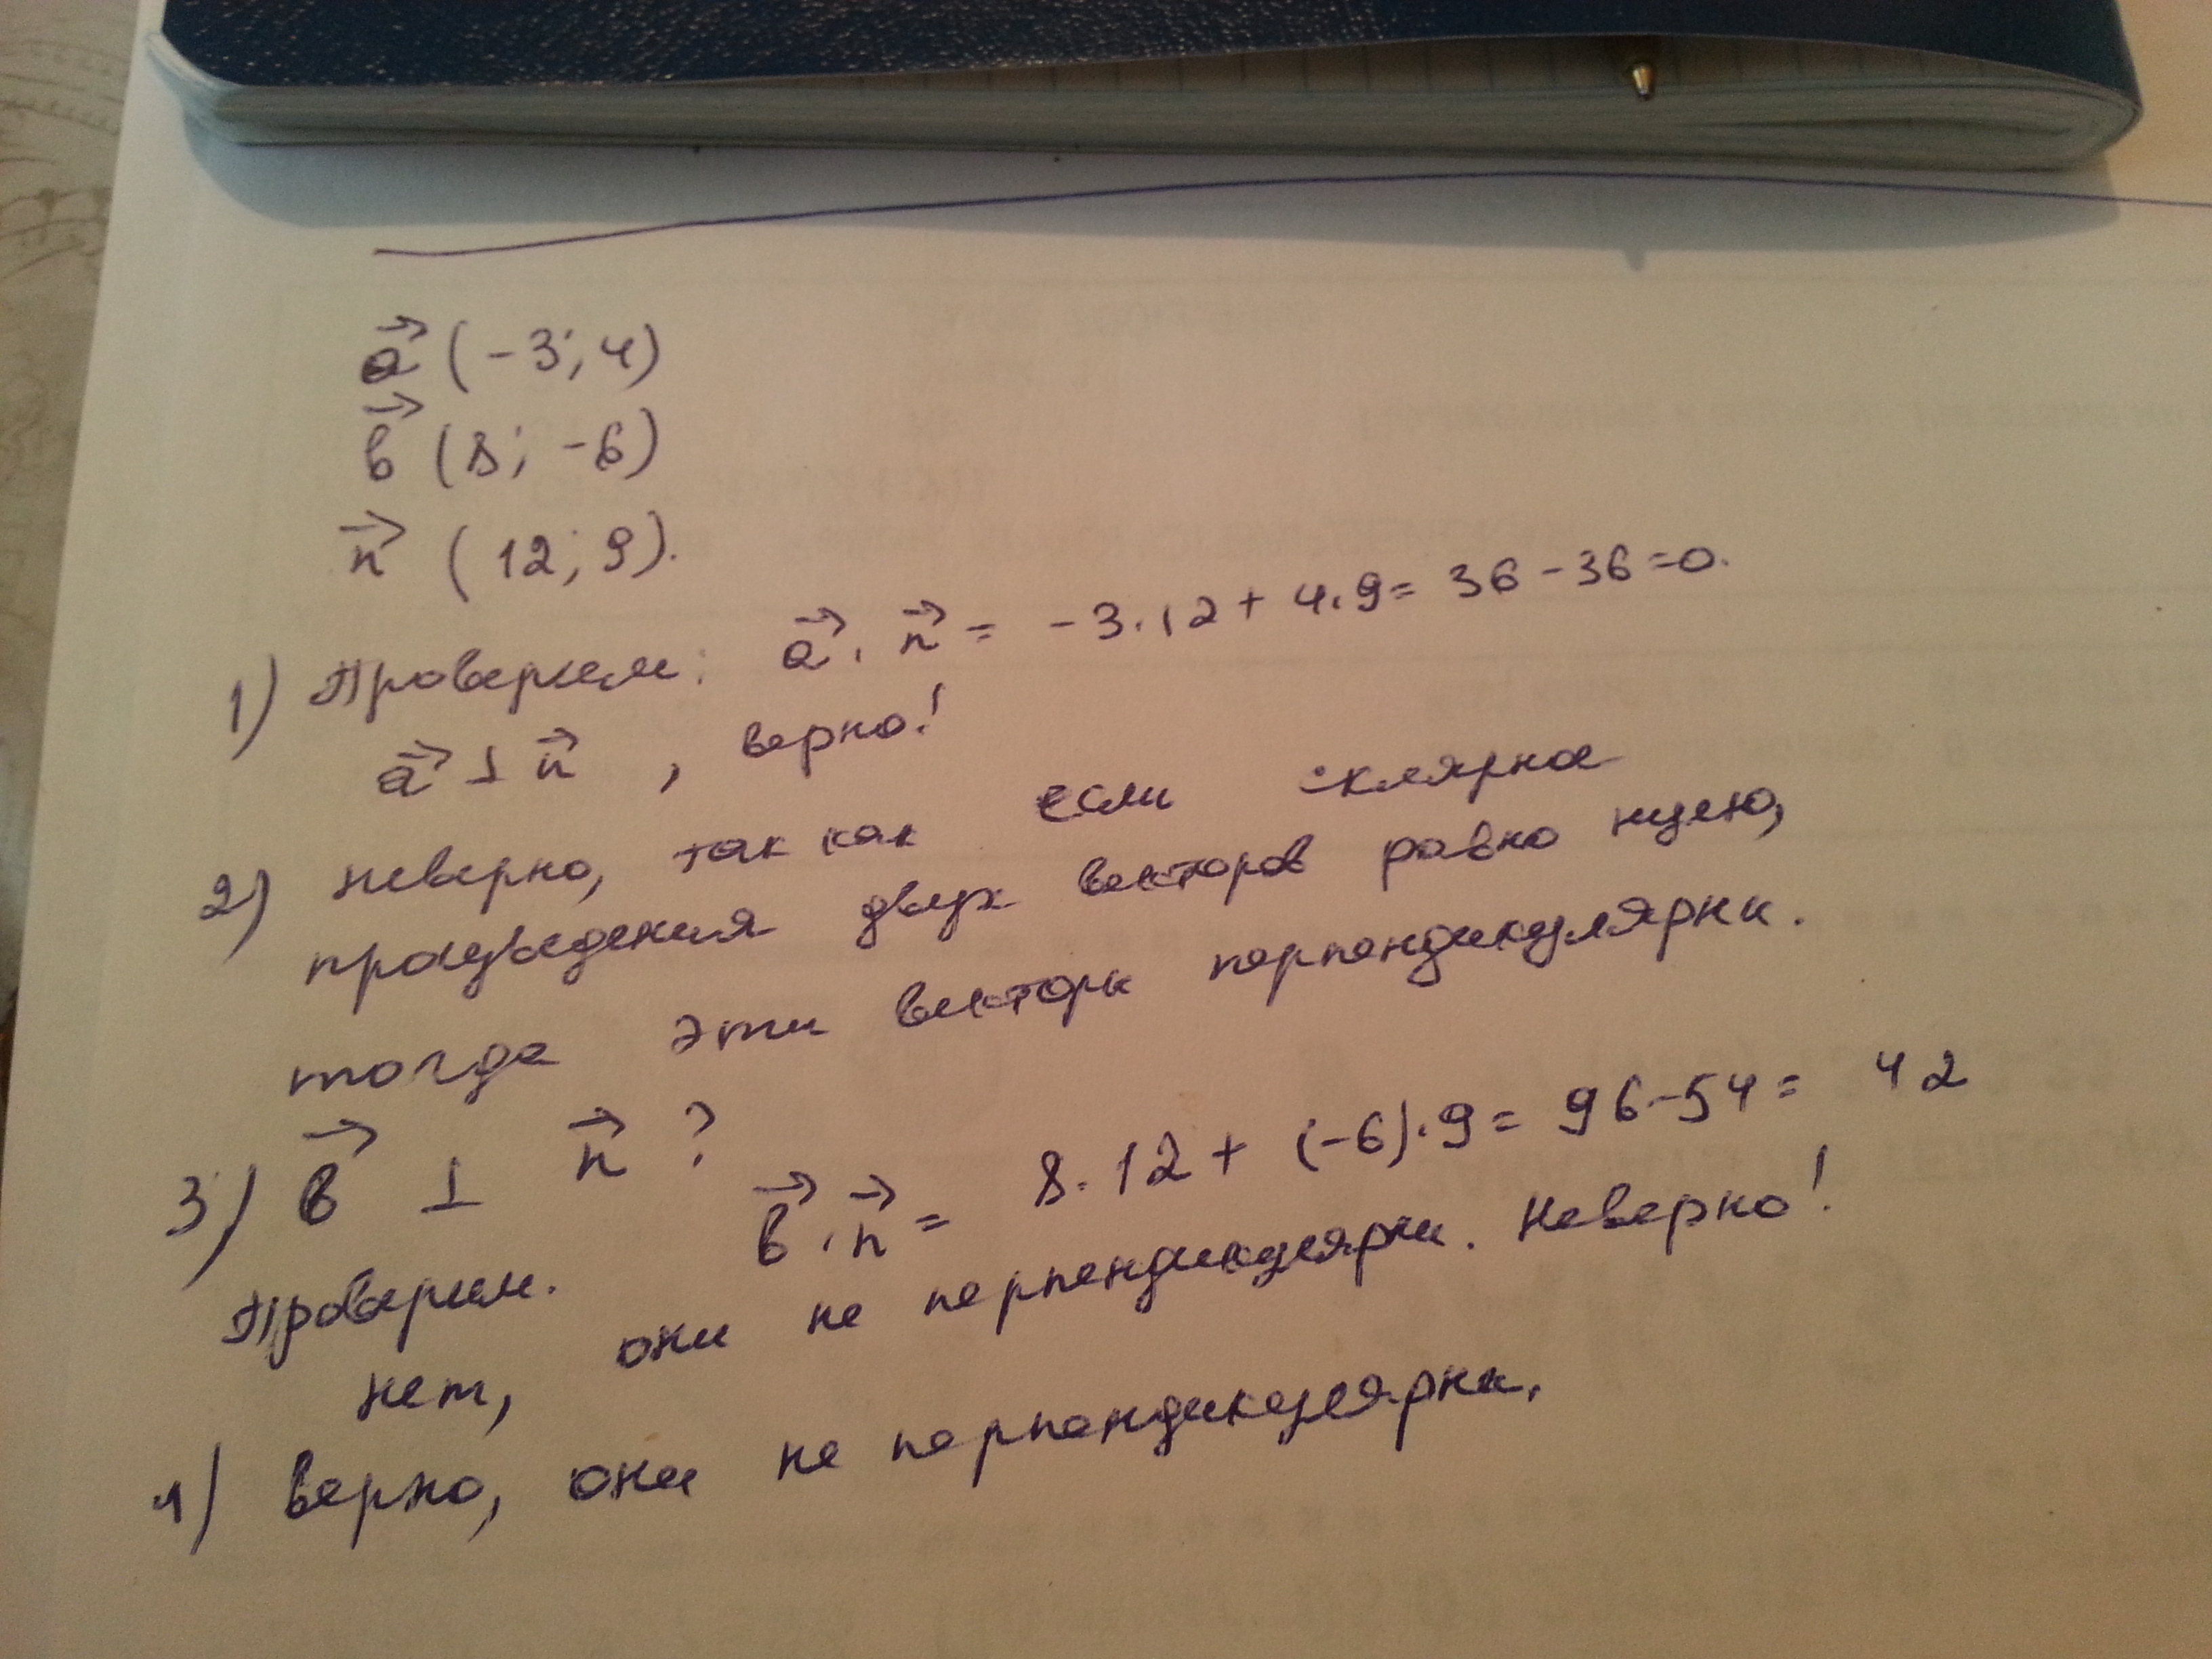 a⃗ (-3; 4)
в⃗ (8; -6)
n⃗ (12; 9).
1) Проверим: a⃗ · n⃗ = -3·12 + 4·9 = 36 - 36 = 0.
a⃗ ⊥ n⃗, верно!
2) неверно, так как если склярное
произведения двух векторов равно нулю,
тогда эти векторы перпендикулярны.
3) в⃗ ⊥ n⃗ ?
Проверим. в⃗ · n⃗ = 8·12 + (-6)·9 = 96-54 = 42
нет, они не перпендикулярны. Неверно!
4) верно, они не перпендикулярны.